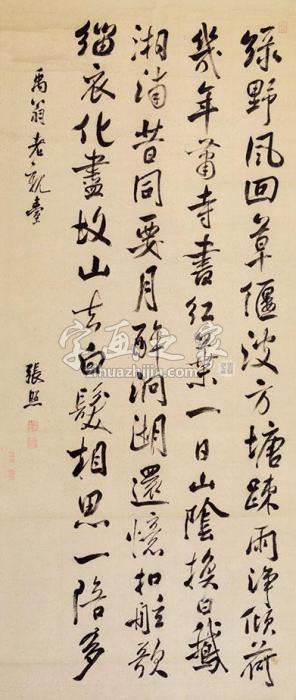 綠野風回草偃波方塘疎雨净傾荷
幾年蕭寺書紅葉一日山陰換白鵝
湘浦昔同要月醉洞湖還憶扣舷歌
緇衣化盡故山去白髮相思一陪多
禹翁老親臺
張照
字画之家
zihuazhijia.com